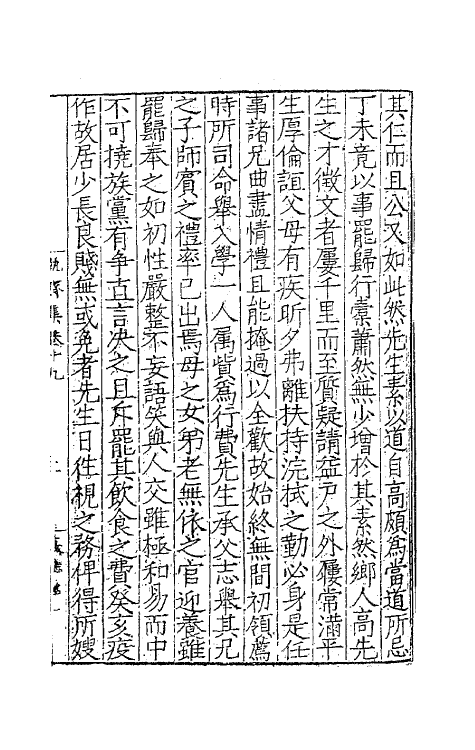 其仁而且公又如此然先生素以道自高頗爲當道所忌
丁未竟以事罷歸行橐蕭然無少增於其素然鄉人高先
生之才徵文者屢千里而至質疑請益戶之外屨常滿平
生厚倫誼父母有疾昕夕弗離扶持浣拭之勤必身是任
事諸兄曲盡情禮且能掩過以全歡故始終無間初領薦
時所司命舉入學一人属貲爲行費先生承父志舉其兄
之子師賓之禮率己出焉母之女弟老無依之官迎養雖
罷歸奉之如初性嚴整不妄語笑與人交雖極和易而中
不可撓族黨有爭直言決之且斥罷其飲食之費癸亥疫
作故居少長良賤無或免者先生日徃視之務俾得所嫂
集卷十九